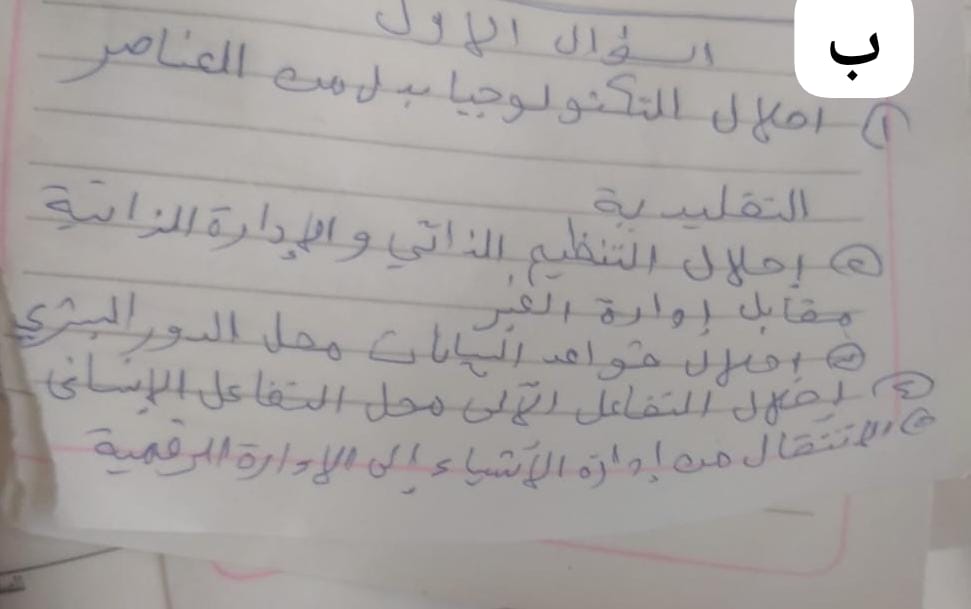 ب
السؤال الاول
① احلال التكنولوجيا بدل من العناصر
التقليدية
② إحلال التنظيم الذاتي والإدارة الذاتية
مقابل إدارة الغير
③ احلال قواعد البيانات محل الدور البشري
④ احلال التفاعل الآلى محل التفاعل الإنسانى
⑤ الانتقال من إدارة الأشياء إلى الادارة الرقمية